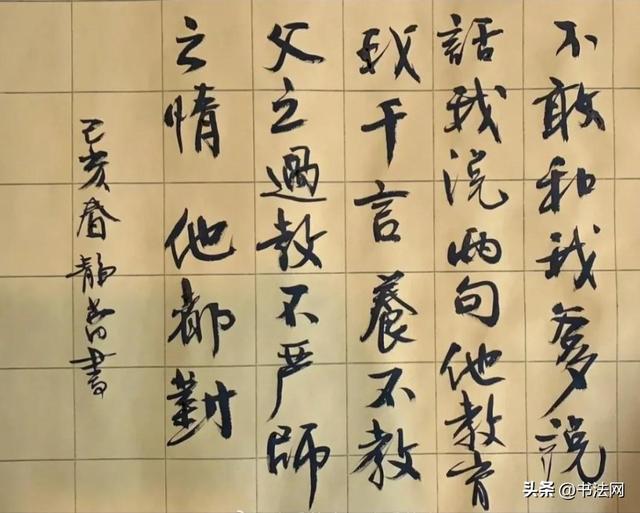 不敢和我爹説
話我说两句他教育
我千言養不教
父之過教不严師
之惰 他都對
己亥春静書
头条 @书法网